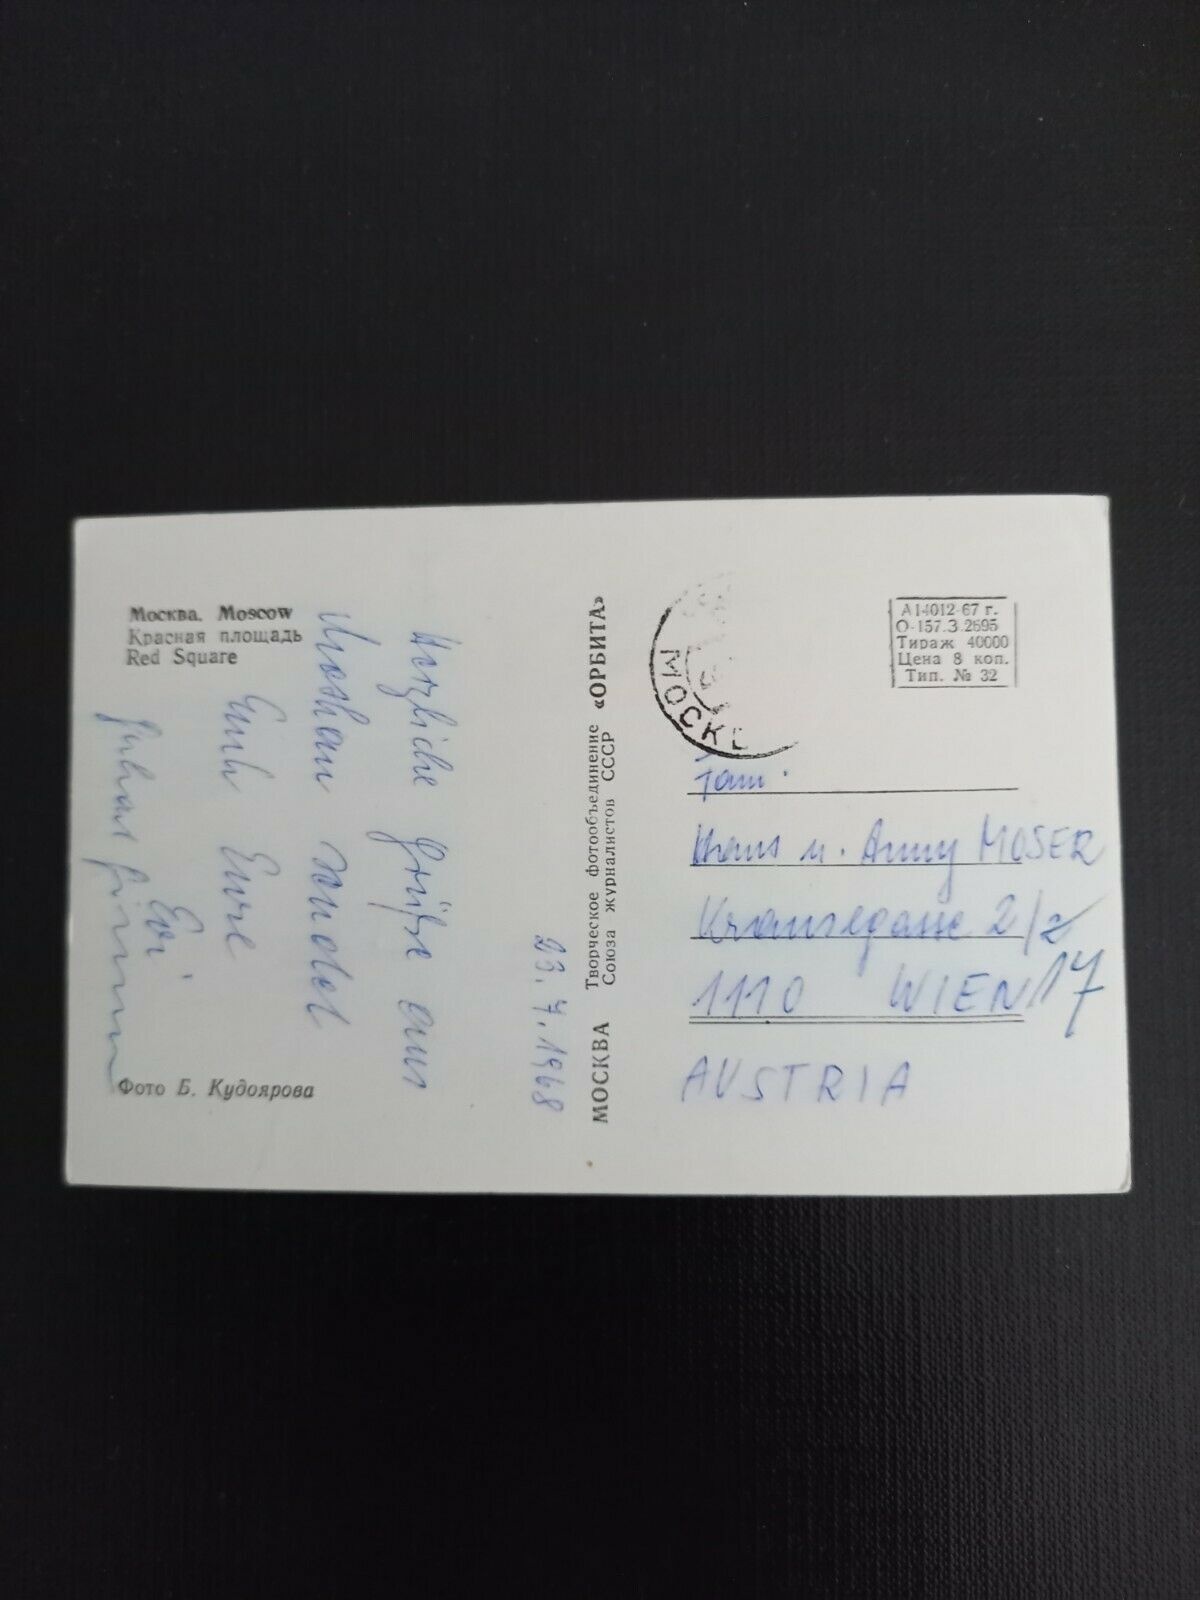 Москва. Moscow
Красная площадь
Red Square
23.7.1968
Herzliche Grüße aus
Moskau sendet
Euch Eure
Evi
Фото Б. Кудоярова
МОСКВА
Творческое фотообъединение
Союза журналистов СССР
«ОРБИТА»
МОСКВ
А14012-67 г.
О-157.З.2695
Тираж 40000
Цена 8 коп.
Тип. № 32
Fam.
u. Anny MOSER
2/2
1110 WIEN
17
AUSTRIA